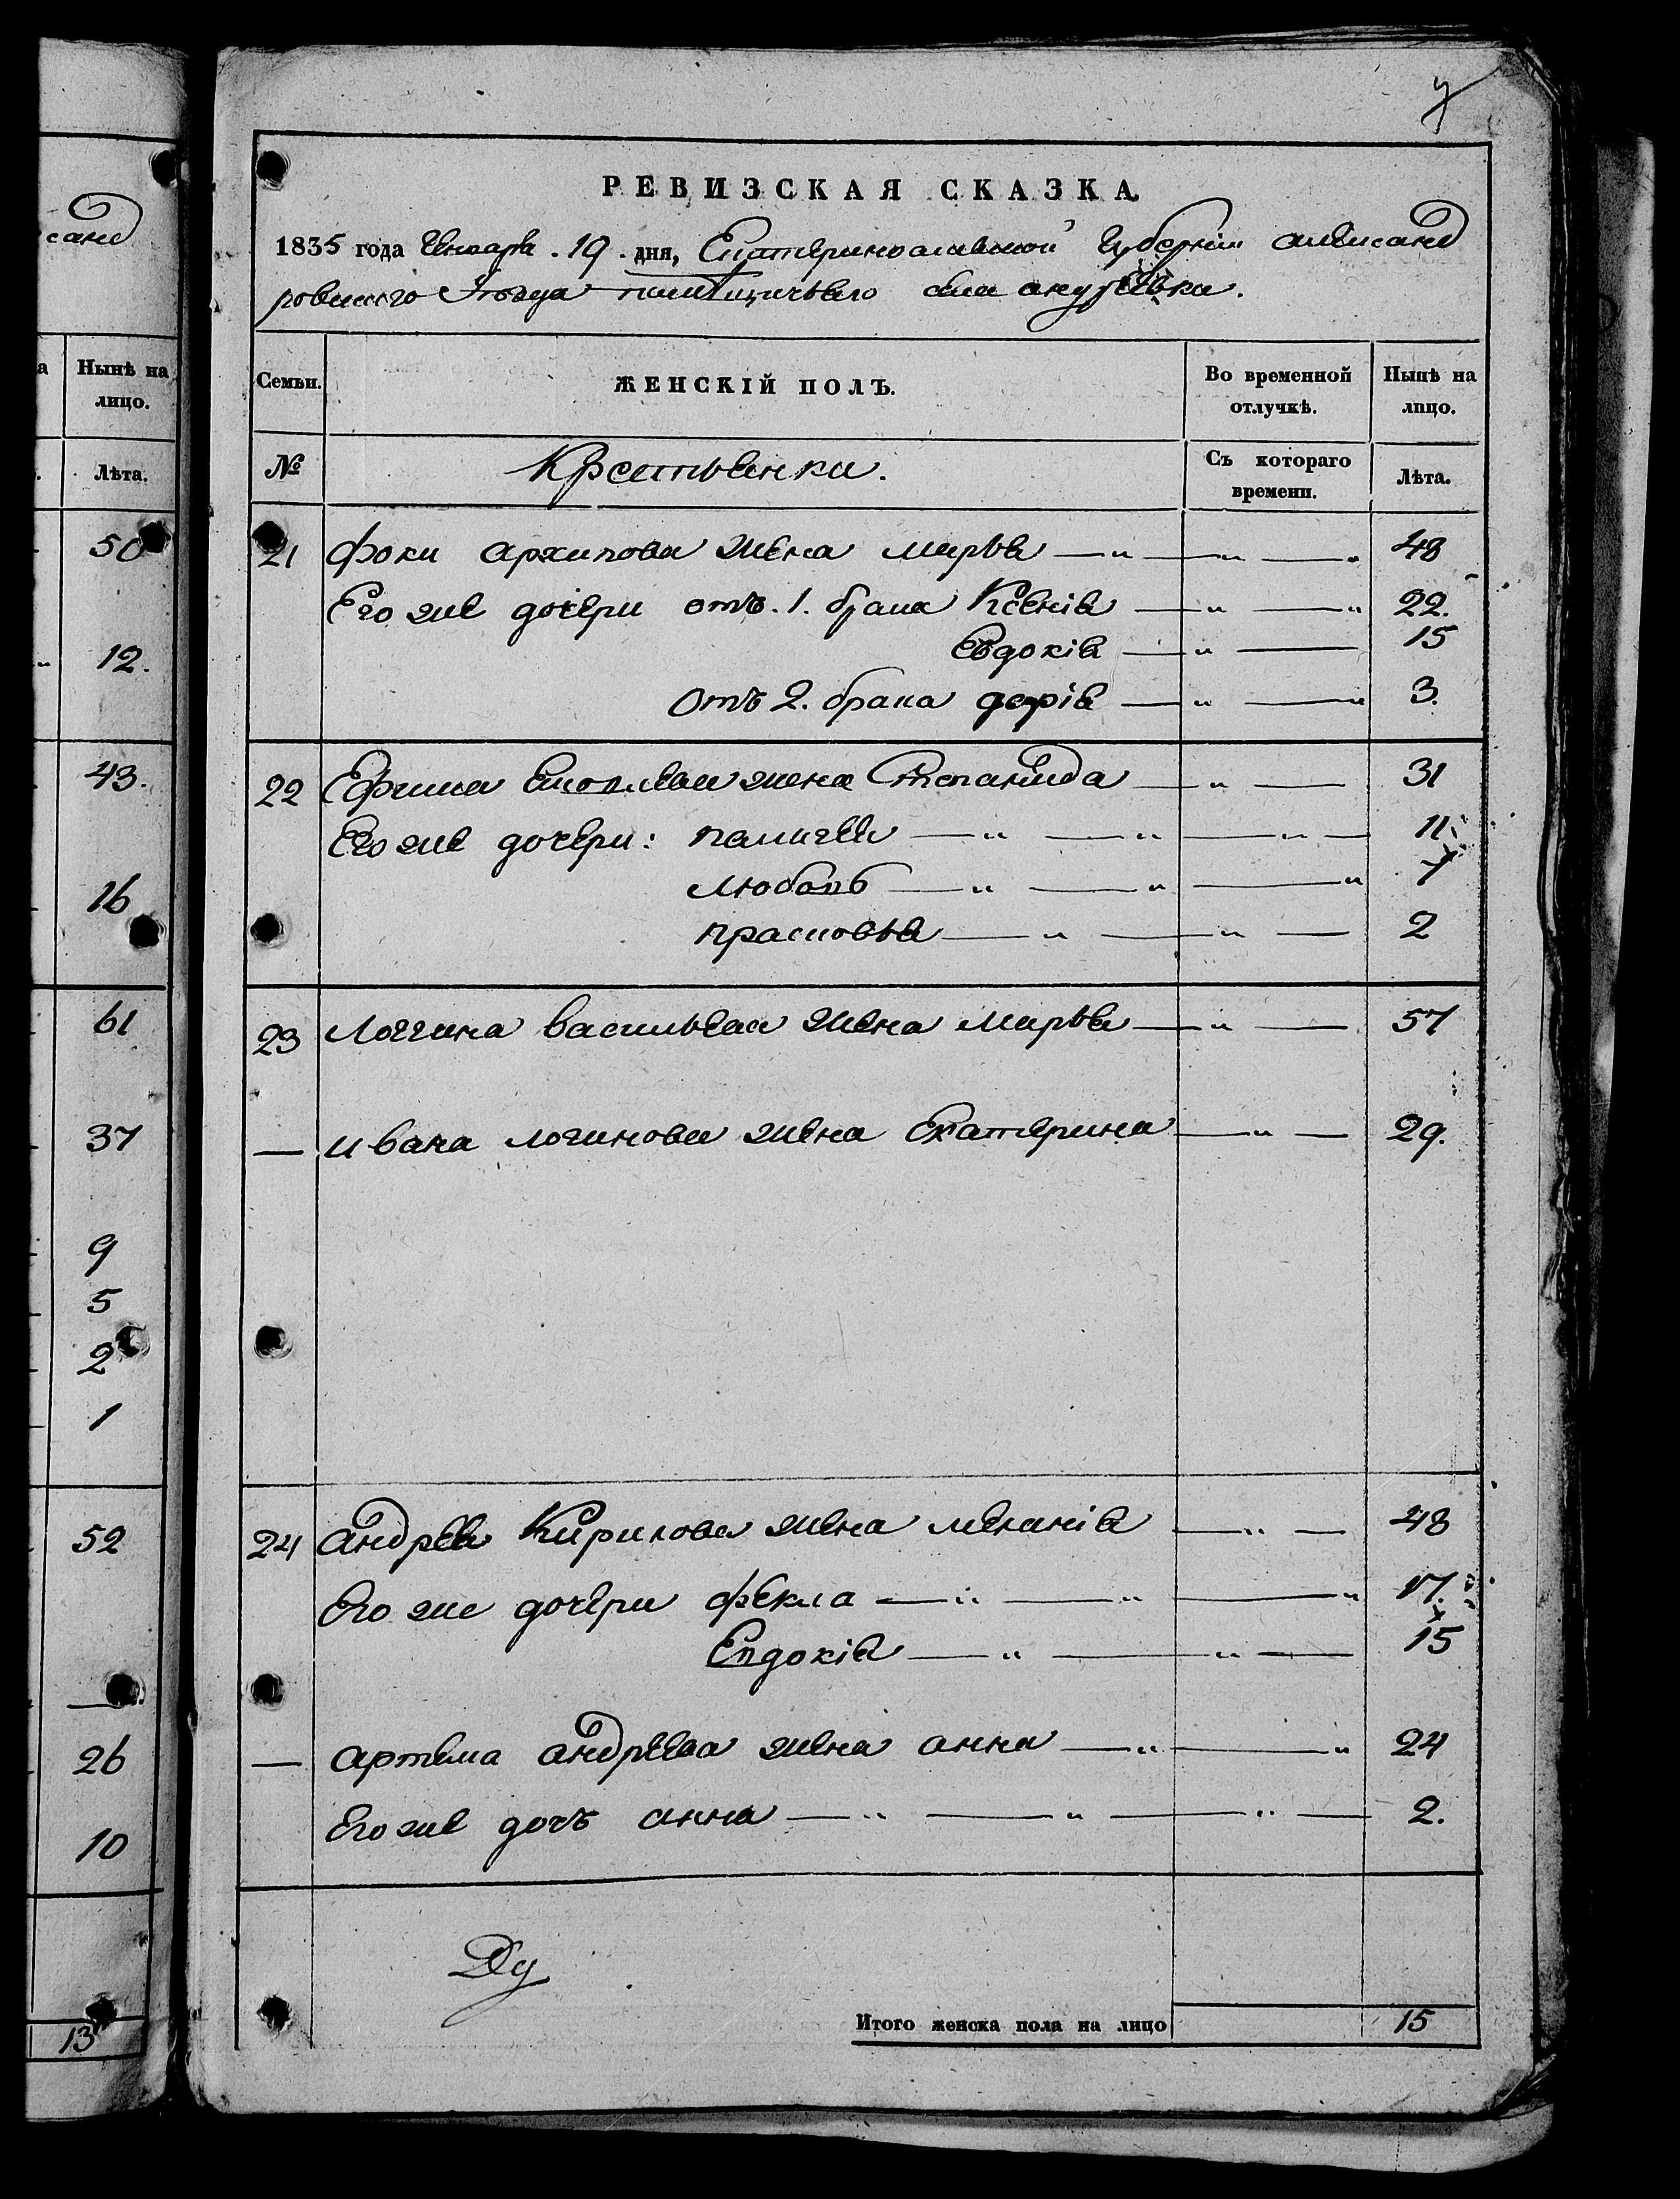 санд
Нынѣ на
лицо.
Лѣта.
50
12.
43.
16
61
37
9
5
2
1
52
26
10
13
РЕВИЗСКАЯ СКАЗКА
1835 года Генваря 19. дня, Екатеринославской Губерніи Александ
ровскаго Уѣзда помѣщичьяго села
Семьи.
ЖЕНСКІЙ ПОЛЪ.
Во временной
отлучкѣ.
Нынѣ на
лицо.
№
Крестьянки.
Съ котораго
времени.
Лѣта.
21 Фоки Архипова жена Марья — „ — „ — 48
Его же дочери отъ. 1. брака Ксенія — „ — „ 22.
Евдокія — „ — 15
Отъ 2. брака Дарія — „ — „ 3.
22 Ефима жена Степанида — „ — 31
Его же дочери: — „ — „ — „ — 11
Любовь — „ — „ — „ 7
Прасковья — „ — „ — 2
23 Логгина Васильева жена Марья — „ — 57
— Ивана Логинова жена Екатерина — „ — 29.
24 Андрея Кирилова жена Меланія — „ — 48
Его же дочери Фекла — „ — „ — „ 17.
Евдокія — „ — „ — 15
— Артема Андреева жена Анна — „ — „ 24
Его же дочь Анна — „ — „ — „ — 2.
Итого женска пола на лицо 15